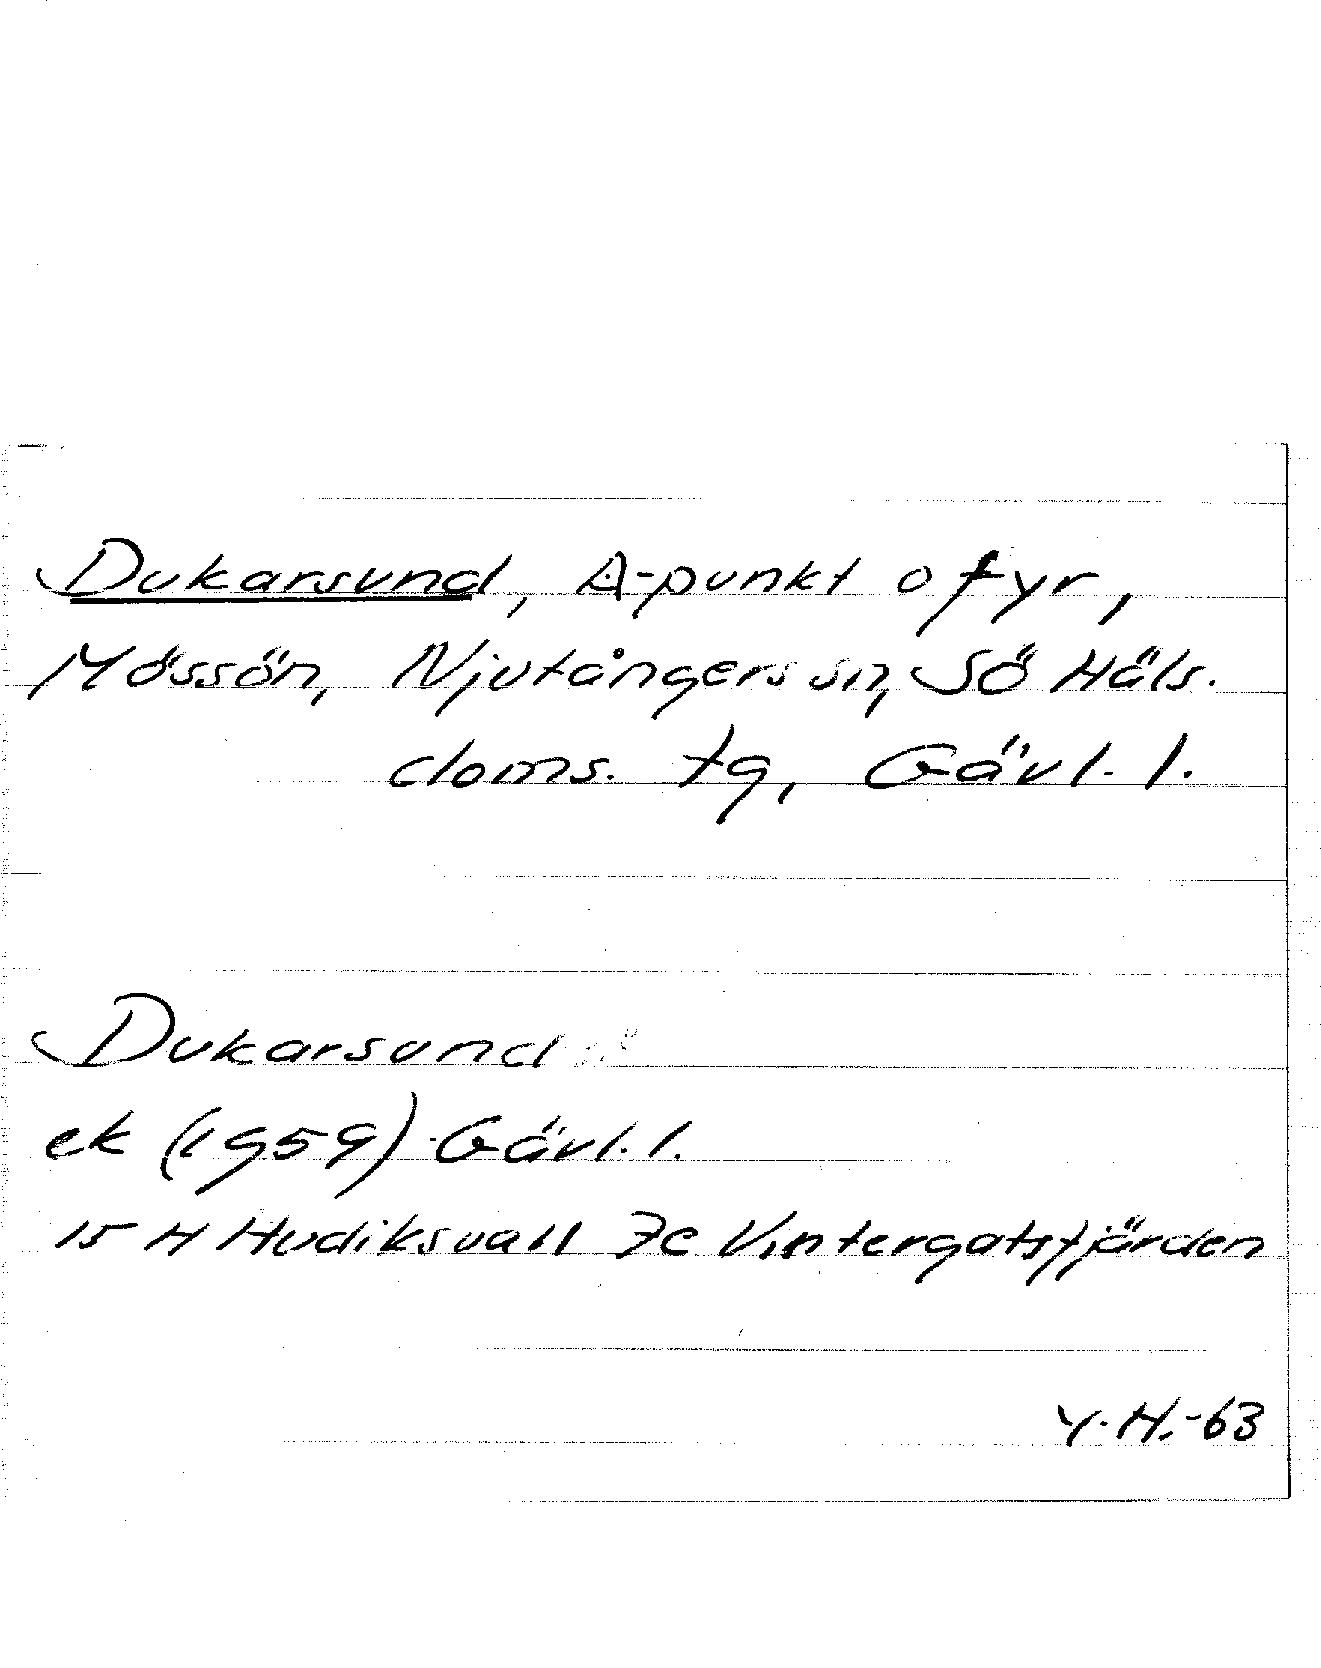 Dukarsund, A-punkt o fyr,
Mössön, Njutångers sn, Sö Häls.
doms. tg, Gävl. l.
Dukarsund
ek (1959) Gävl. l.
15 H Hudiksvall 7c Vintergatsfjärden
Y. H. -63